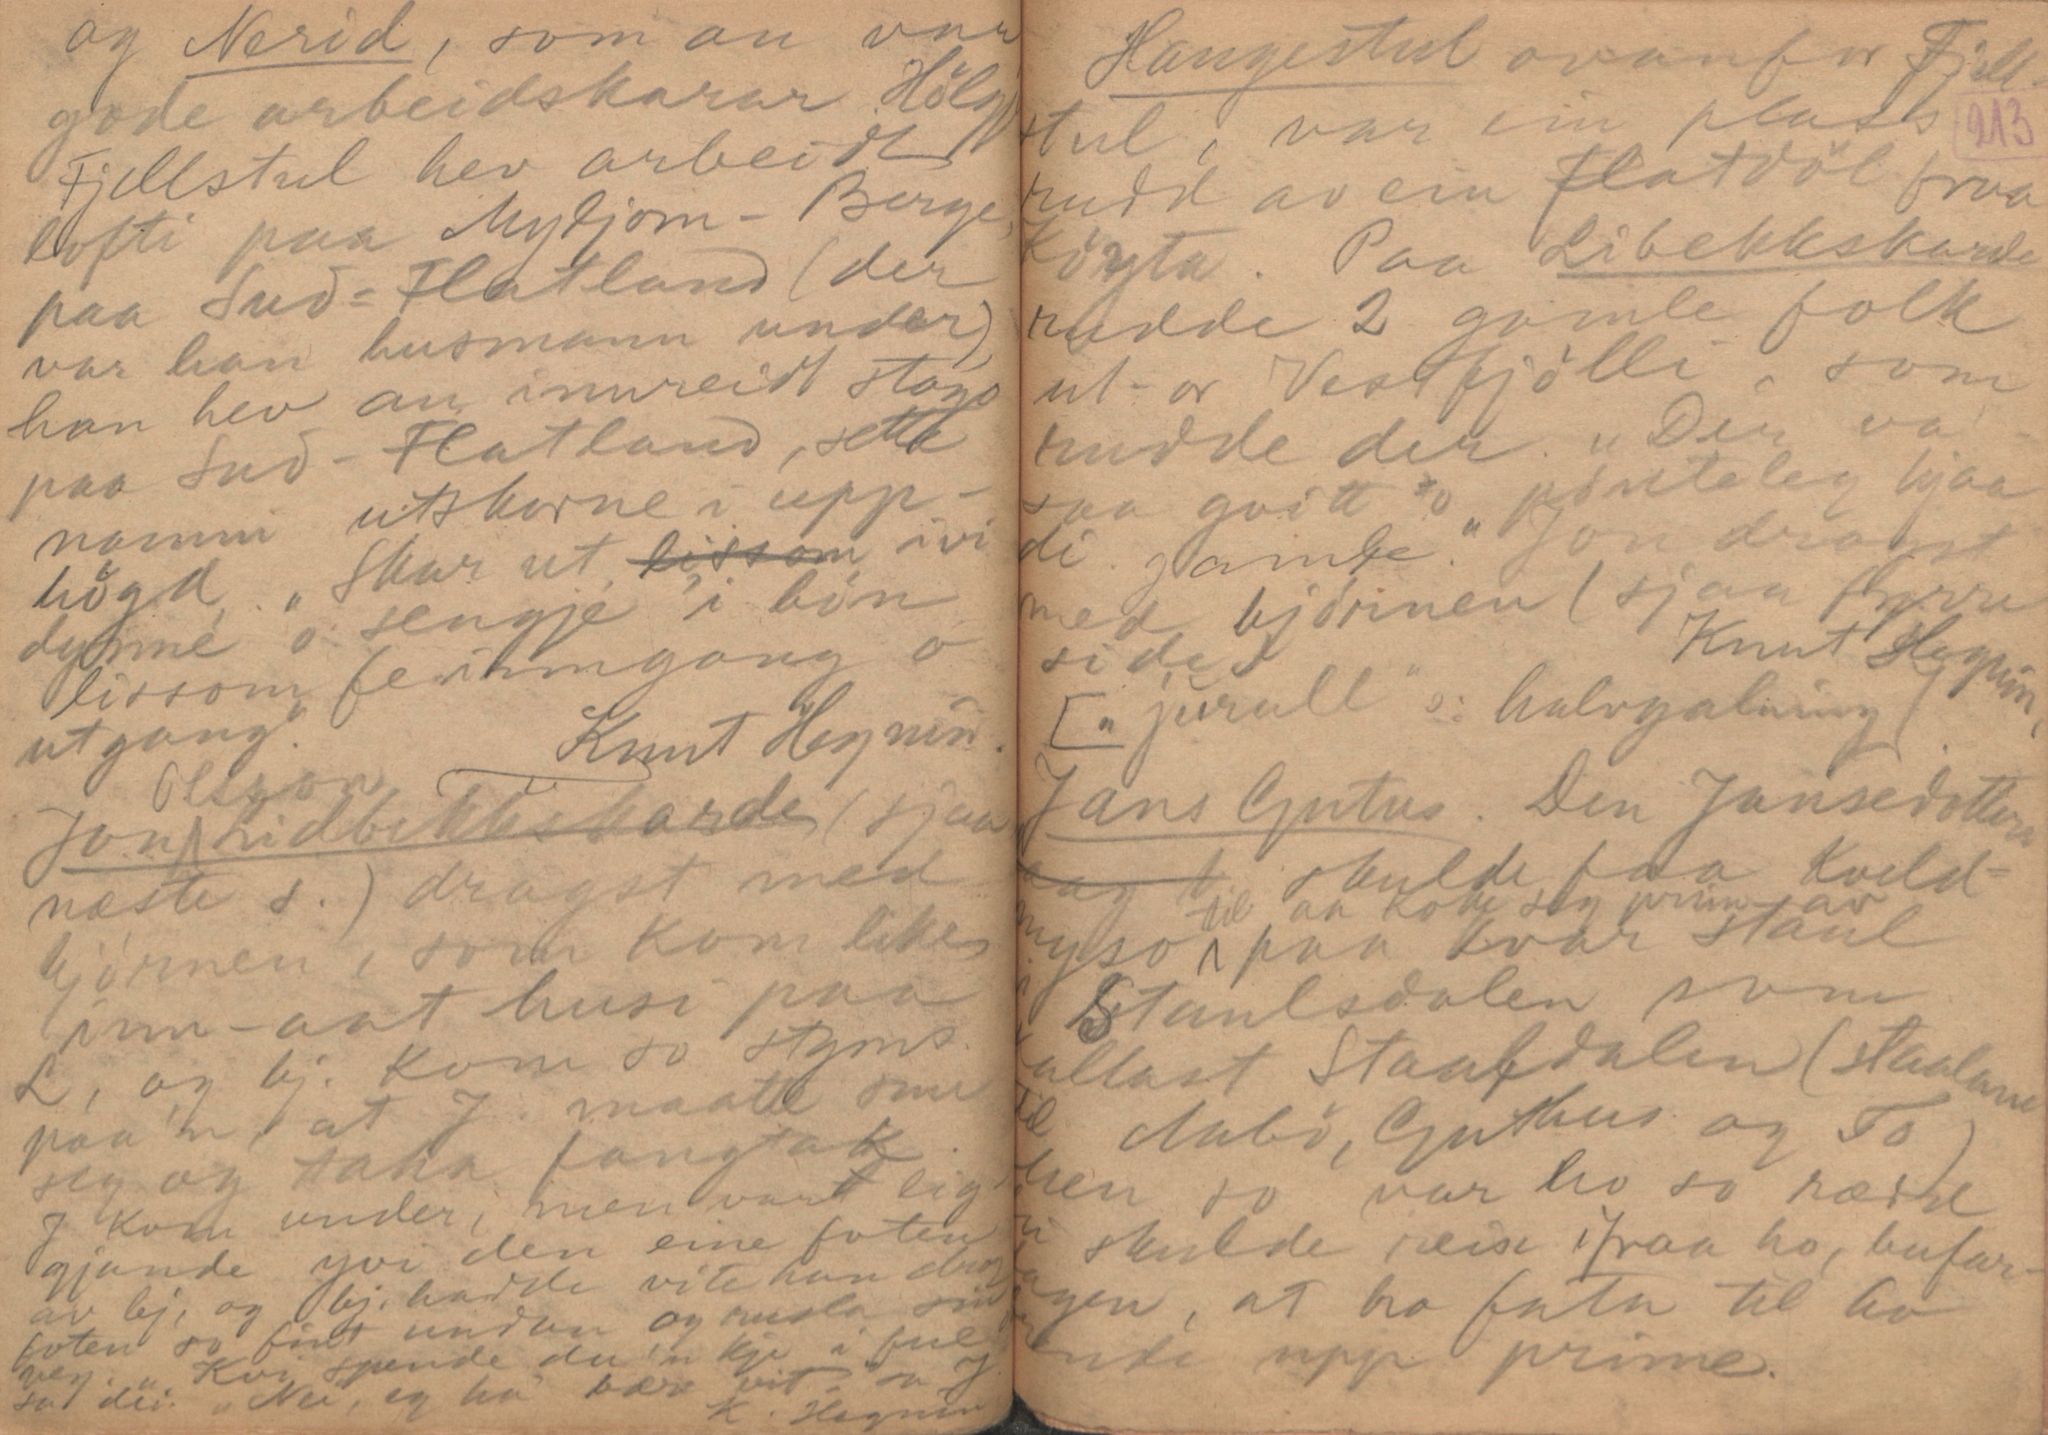 og Nerid, som au var
gode arbeidskarar. Hölge
Fjellstul hev arbeidt
lofti paa Mydjom-Berge,
paa Sud-Flatland (der
var han husmann under),
han hev au innreidt stogo
paa Sud-Flatland, sette
namni utskorne i upp-
högd. "Skar ut lissom ivi
dynne o sengje" i bön
lissom fe inngang o
utgang."
Knut Hegnin.
Olsson
Jon Lidbekkskarde (sjaa
næste s.) drogst med
björnen, som kom likes
inn-aat husi paa
L, og bj. kom so styms
paa'n, at J. maatte snu
seg og taka fangtak.
J kom under, men vart lig-
gjande yvi den eine foten
av bj, og bj. hadde vite han drog
foten so fint undan og rusla sin
veg. "Kvi spende du'n kje i ful"
sa dei. "Nei, eg ha bære vit" sa J.
K. Hegnin
Haugestul ovanfor Fjell-
213
stul, var ein plass
rudd av ein Flatdöl fraa
Köyta. Paa Libekkskarde
rudde 2 gamle folk
ut-or Vestfjölli, som
rudde der. "Der va
saa gvitt o pönteleg hjaa
di gamle." Jon drogst
med bjørnen (sjaa fyrre
side)
Knut Hegnin,
["jurall" ɔ: halvgalning].
Jans Gutus. Den Jansedotteri
skulde faa Kveld-
til aa koke seg prim av
myso paa kvar staul
i Staulsdalen som
kallast Stauldalen (staulane
til Aabö, Guthus og To)
men so var ho so rædd
dei skulde reise ifraa ho, bufar-
dagen, at ho fata til ho
upp prime.